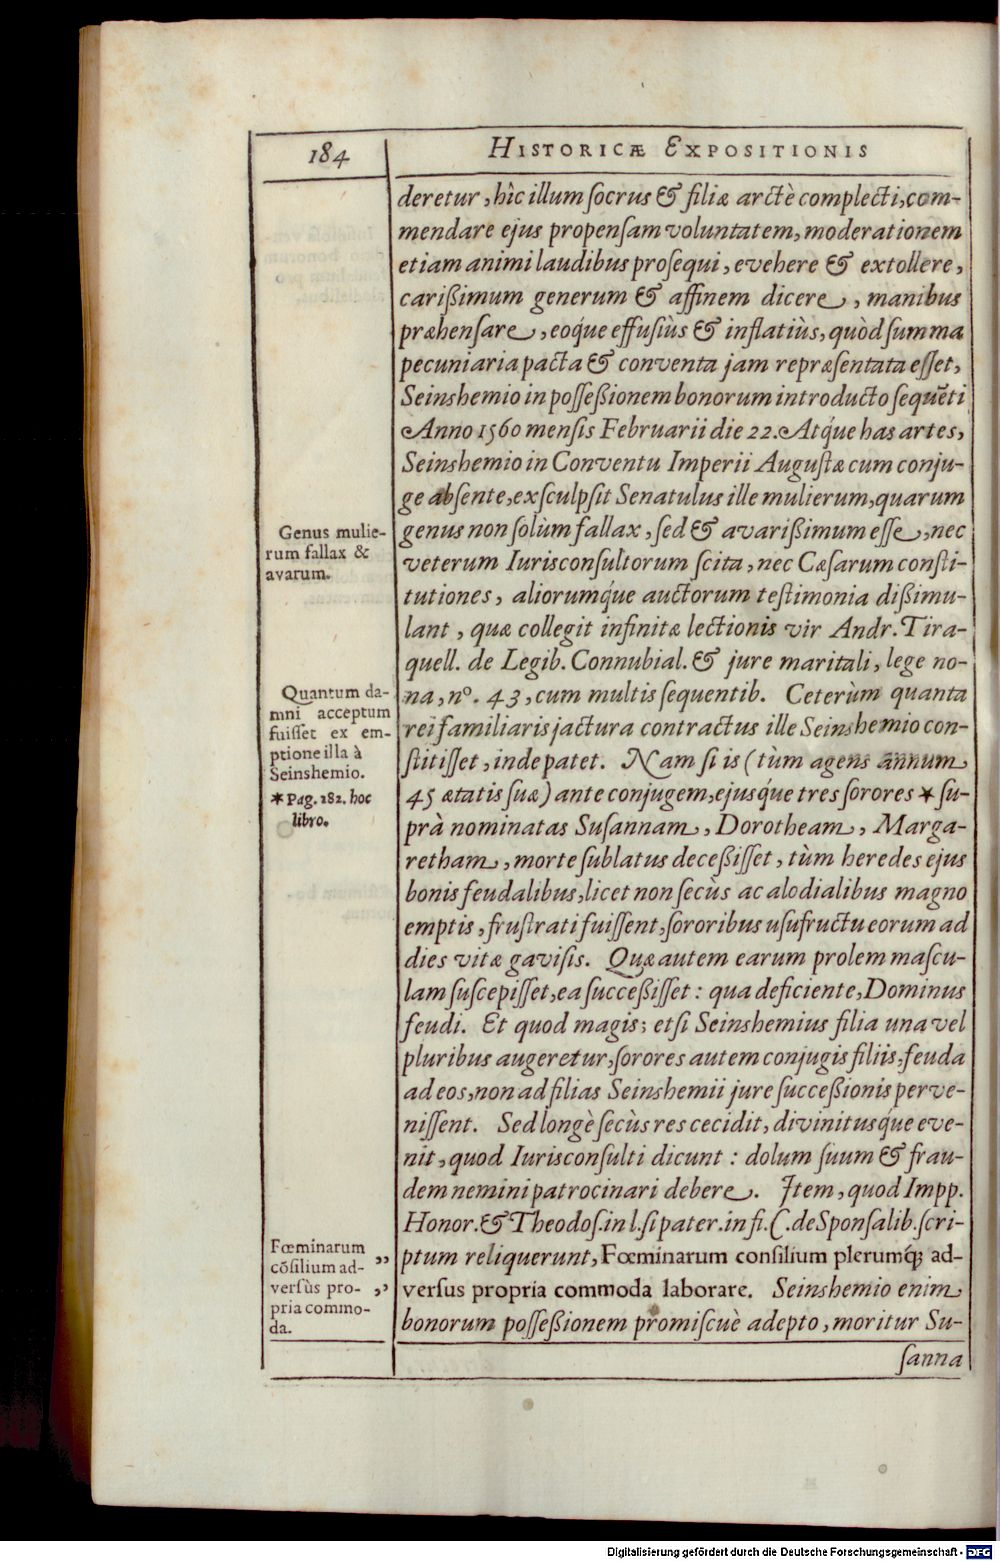 184
HISTORICÆ EXPOSITIONIS
deretur, hîc illum socrus & filiæ arctè complecti, com-
mendare ejus propensam voluntatem, moderationem
etiam animi laudibus prosequi, evehere & extollere,
carißimum generum & affinem dicere, manibus
præhensare, eoq́ue effusiùs & inflatiùs, quòd summa
pecuniaria pacta & conventa jam repræsentata esset,
Seinshemio in possessionem bonorum introducto sequēti
Anno 1560 mensis Februarii die 22. Atq́ue has artes,
Seinshemio in Conventu Imperii Augustæ cum conju-
ge absente, exsculpsit Senatulus ille mulierum, quarum
genus non solùm fallax, sed & avarißimum esse, nec
veterum Iurisconsultorum scita, nec Cæsarum consti-
tutiones, aliorumq́ue auctorum testimonia dißimu-
lant, quæ collegit infinitæ lectionis vir Andr. Tira-
quell. de Legib. Connubial. & jure maritali, lege no-
na, nº. 43, cum multis sequentib. Ceterùm quanta
rei familiaris jactura contractus ille Seinshemio con-
stitisset, inde patet. Nam si is (tùm agens annum
45 ætatis suæ) ante conjugem, ejusq́ue tres sorores ★ su-
prà nominatas Susannam, Dorotheam, Marga-
retham, morte sublatus deceßisset, tùm heredes ejus
bonis feudalibus, licet non secùs ac alodialibus magno
emptis, frustrati fuissent, sororibus usufructu eorum ad
dies vitæ gavisis. Quæ autem earum prolem mascu-
lam suscepisset, ea succeßisset: qua deficiente, Dominus
feudi. Et quod magis; etsi Seinshemius filia una vel
pluribus augeretur, sorores autem conjugis filiis, feuda
ad eos, non ad filias Seinshemii jure succeßionis perve-
nissent. Sed longè secùs res cecidit, divinitusq́ue eve-
nit, quod Iurisconsulti dicunt: dolum suum & frau-
dem nemini patrocinari debere. Item, quod Impp.
Honor. & Theodos. in l. si pater. in fi. C. de Sponsalib. scri-
ptum reliquerunt, Fœminarum consilium plerumq́; ad-
versus propria commoda laborare. Seinshemio enim
bonorum possessionem promiscuè adepto, moritur Su-
sanna
Genus mulie-
rum fallax &
avarum.
Quantum da-
mni acceptum
fuisset ex em-
ptione illa à
Seinshemio.
★ Pag. 182. hoc
libro.
Fœminarum „
cōsilium ad-
versùs pro- „
pria commo-
da.
Digitalisierung gefördert durch die Deutsche Forschungsgemeinschaft - DFG